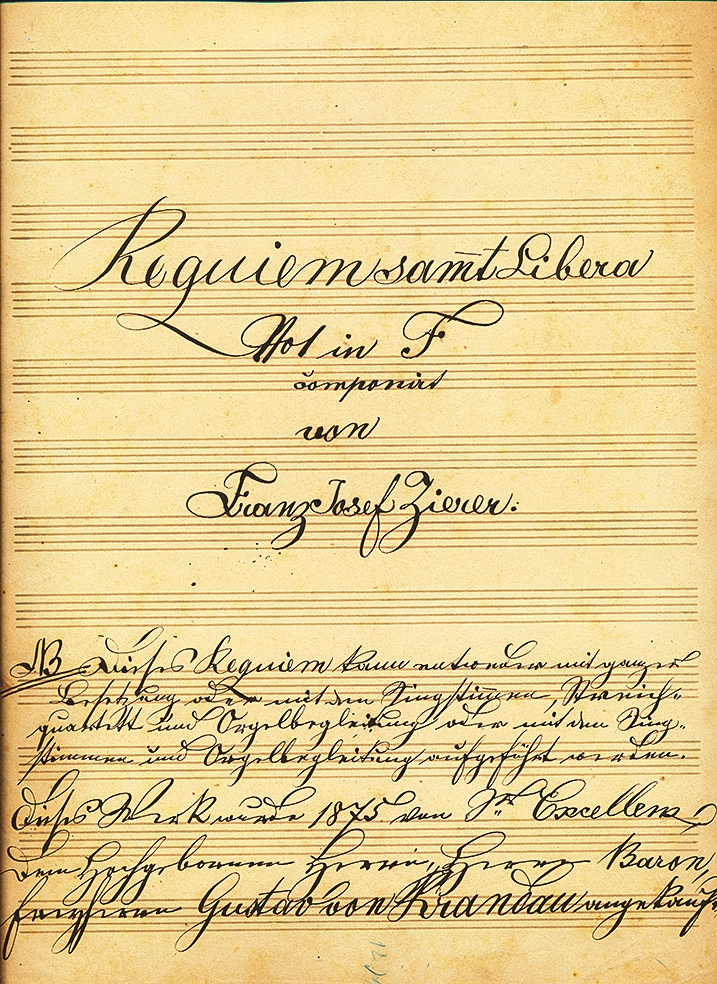 Requiem sammt Libera
No 1 in F
componirt
von
Franz Josef Zierer.
NB Dieses Requiem kann entweder mit ganzer
Besetzung oder mit den Singstimen, Streich-
quartett und Orgelbegleitung oder mit den Sing-
stimmen und Orgelbegleitung aufgeführt werden.
Dieses Werk wurde 1875 von Sr Excellenz,
dem Hochgebornen Herrn, Herrn Baron,
Freyherrn Gustav von Prandau angekauft.